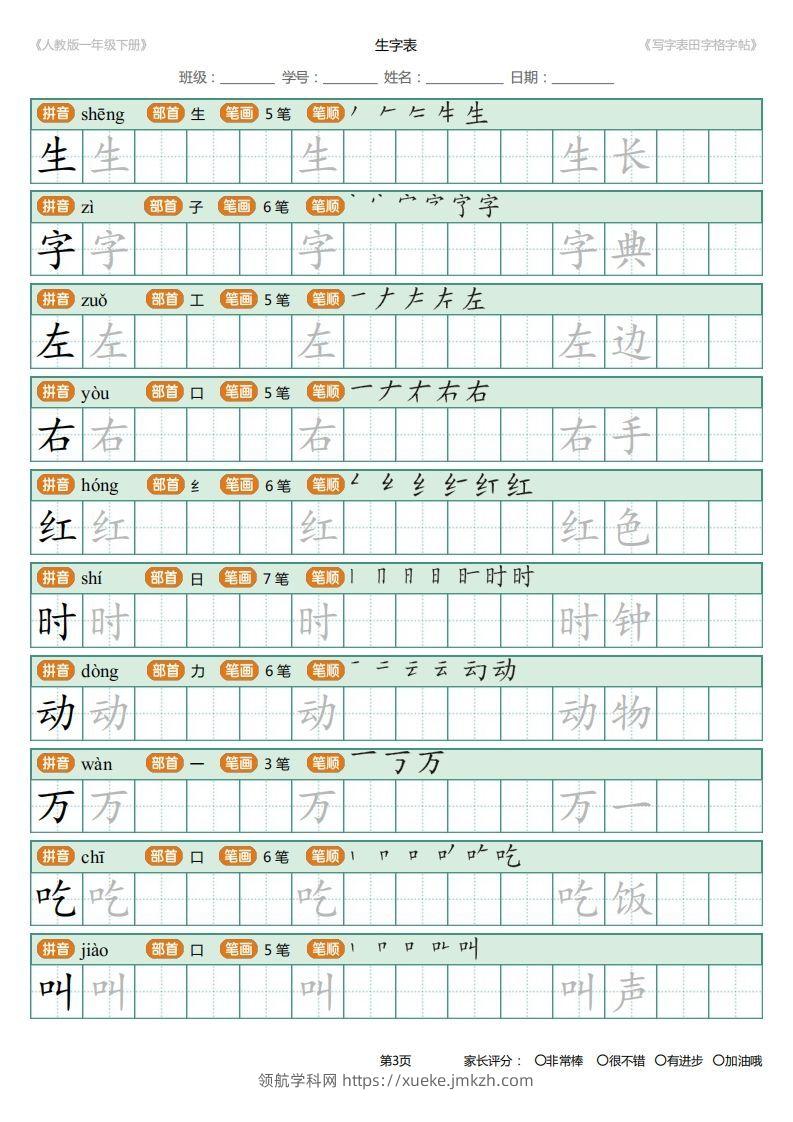 《人教版一年级下册》 生字表 《写字表田字格字帖》
班级：________ 学号：________ 姓名：___________ 日期：_________
拼音 shēng 部首 生 笔画 5 笔 笔顺 生
生 生 生 生 长
拼音 zì 部首 子 笔画 6 笔 笔顺 字
字 字 字 字 典
拼音 zuǒ 部首 工 笔画 5 笔 笔顺 左
左 左 左 左 边
拼音 yòu 部首 口 笔画 5 笔 笔顺 右
右 右 右 右 手
拼音 hóng 部首 纟 笔画 6 笔 笔顺 红
红 红 红 红 色
拼音 shí 部首 日 笔画 7 笔 笔顺 时
时 时 时 时 钟
拼音 dòng 部首 力 笔画 6 笔 笔顺 动
动 动 动 动 物
拼音 wàn 部首 一 笔画 3 笔 笔顺 万
万 万 万 万 一
拼音 chī 部首 口 笔画 6 笔 笔顺 吃
吃 吃 吃 吃 饭
拼音 jiào 部首 口 笔画 5 笔 笔顺 叫
叫 叫 叫 叫 声
第3页 家长评分： 〇非常棒 〇很不错 〇有进步 〇加油哦
领航学科网 https://xueke.jmkzh.com